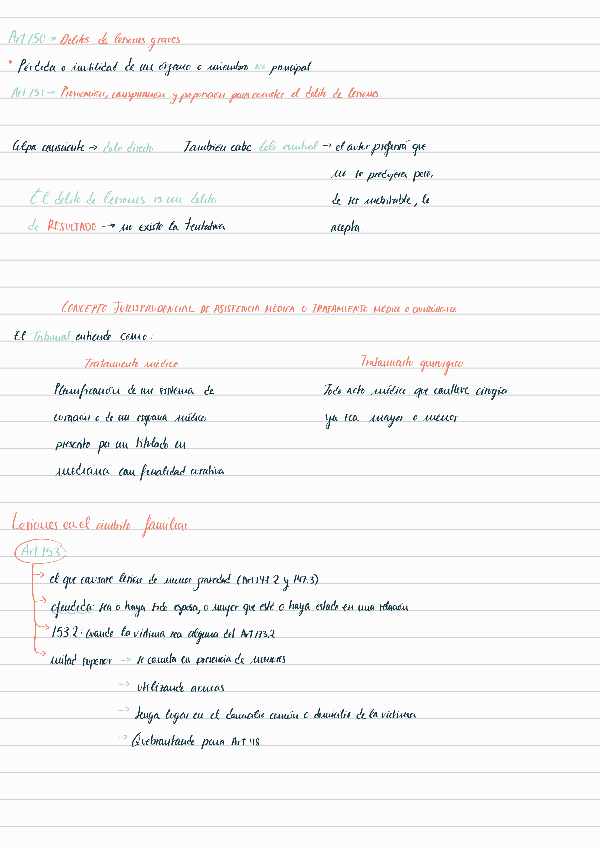 Art 150 → Delitos de lesiones graves
* Pérdida o inutilidad de un órgano o miembro no principal
Art 151 → Provocación, conspiración y proposición para cometer el delito de lesiones
Culpa consciente → dolo directo También cabe dolo eventual → el autor preferiría que
no se produjera pero,
El delito de lesiones es un delito de ser inevitable, lo
de RESULTADO --> no existe la tentativa acepta
CONCEPTO JURISPRUDENCIAL DE ASISTENCIA MÉDICA O TRATAMIENTO MÉDICO O QUIRÚRGICO
El Tribunal entiende como:
Tratamiento médico Tratamiento quirúrgico
Planificación de un sistema de Todo acto médico que conlleve cirugía
curación o de un esquema médico ya sea mayor o menor
prescrito por un titulado en
medicina con finalidad curativa
Lesiones en el ámbito familiar
Art 153
→ el que causare lesión de menor gravedad (Art 147.2 y 147.3)
→ ofendida: sea o haya sido esposa, o mujer que esté o haya estado en una relación
→ 153.2: cuando la víctima sea alguna del Art 173.2
→ mitad superior → se cometa en presencia de menores
→ utilizando armas
→ tenga lugar en el domicilio común o domicilio de la víctima
→ Quebrantando pena Art 48